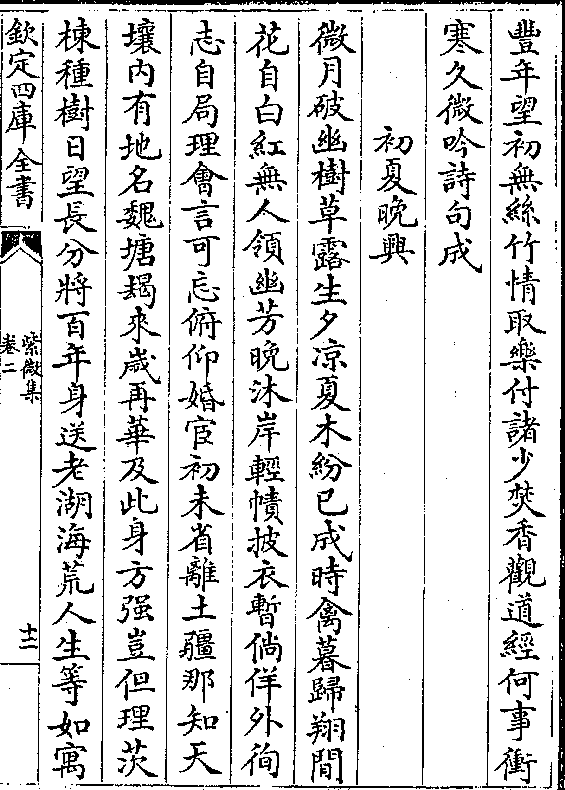 豐年望初無絲竹情取樂付諸少焚香觀道經何事衝
寒久微吟詩句成
初夏晚興
微月破幽樹草露生夕凉夏木紛已成時禽暮歸翔閒
花自白紅無人領幽芳晚沐岸輕幘披衣暫倘佯外徇
志自局理會言可忘俯仰婚宦初未省離土疆那知天
壤内有地名魏塘朅來歲再華及此身方强豈但理茨
棟種樹日望長分將百年身送老湖海荒人生等如寓
欽定四庫全書
紫微集
卷二
十二